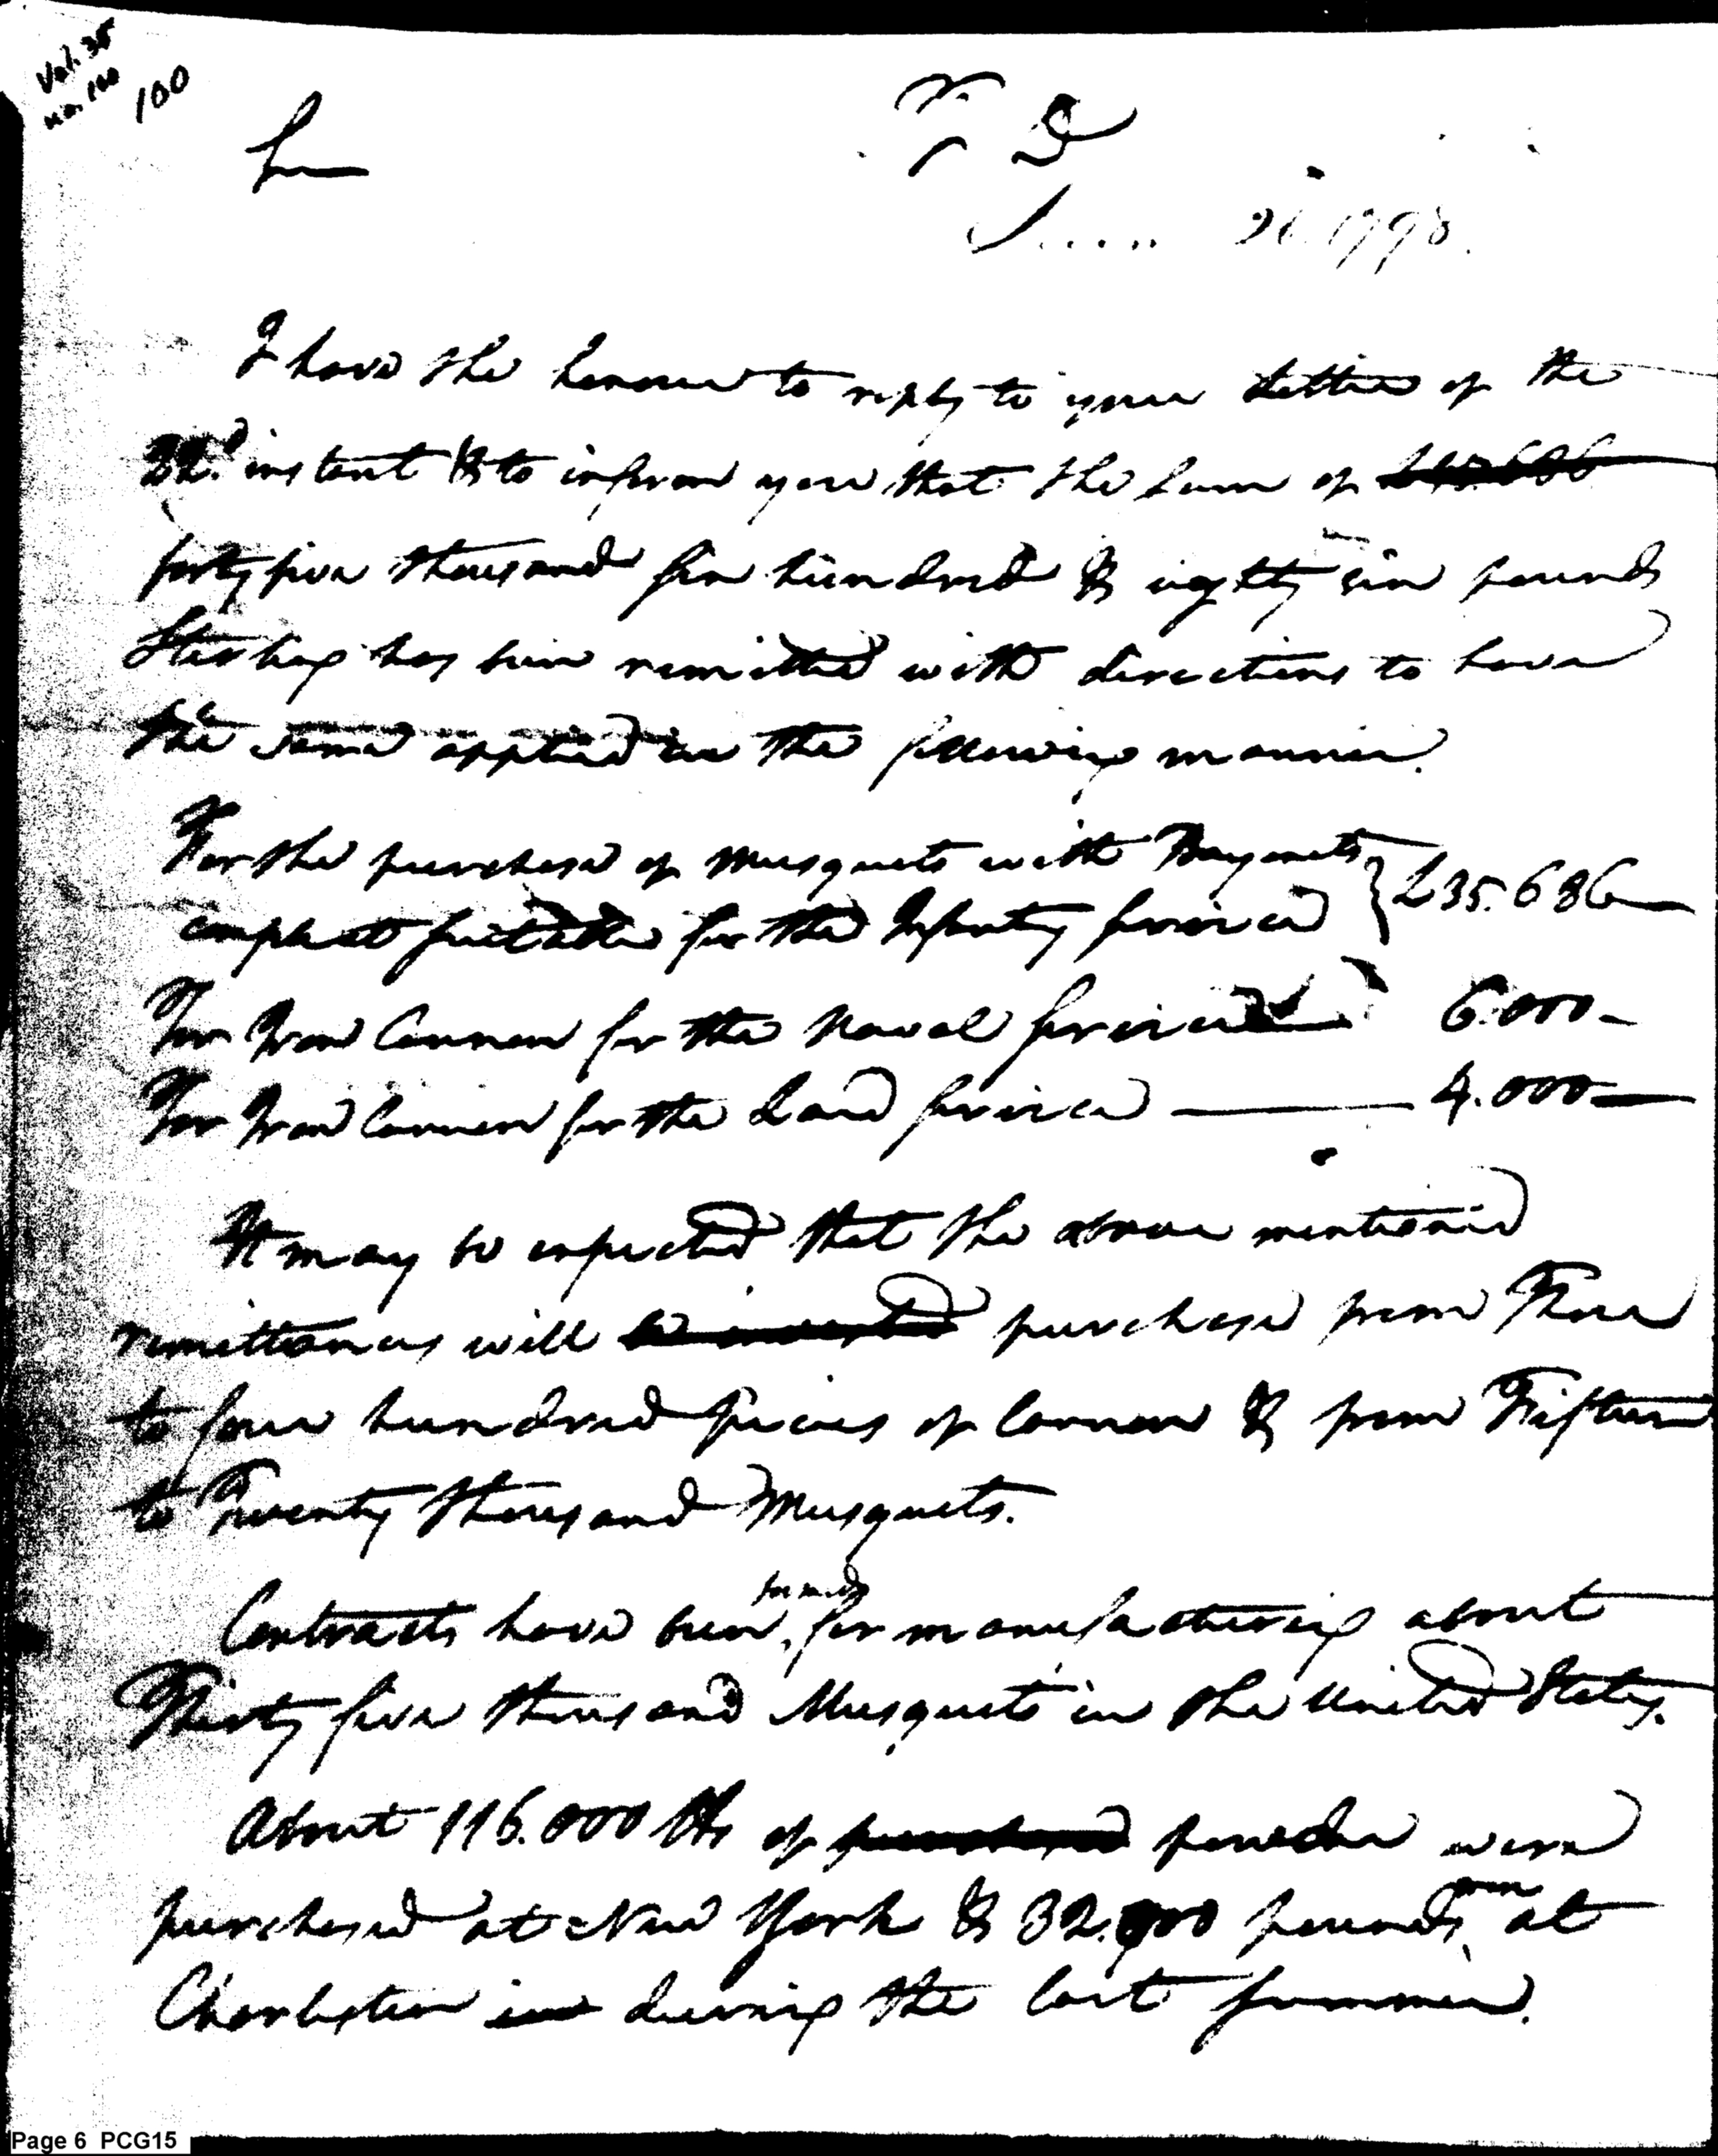 Vol. 35
no. 100
100
T. D.
Sir
26 1798.
I have the honour to reply to your Letter of the
22d. instant & to inform you that the Sum of £45.686
forty five thousand six hundred & eighty six pounds
Sterling has been remitted with directions to have
the same applied in the following manner.
For the purchase of Musquets with Bayonets
compleat suitable for the Infantry service } £35.686
For Iron Cannon for the Naval service 6.000
For Iron Cannon for the Land service 4.000
It may be expected that the above mentioned
remittances will be invested purchase from Three
to four hundred pieces of Cannon & from Fifteen
to Twenty thousand Musquets.
formed
Contracts have been for manufacturing about
Thirty five thousand Musquets in the United States.
About 116.000 lbs of purchased powder were
purchased at New York & 32.900 pounds at
Charleston in during the last summer.
Page 6 PCG15